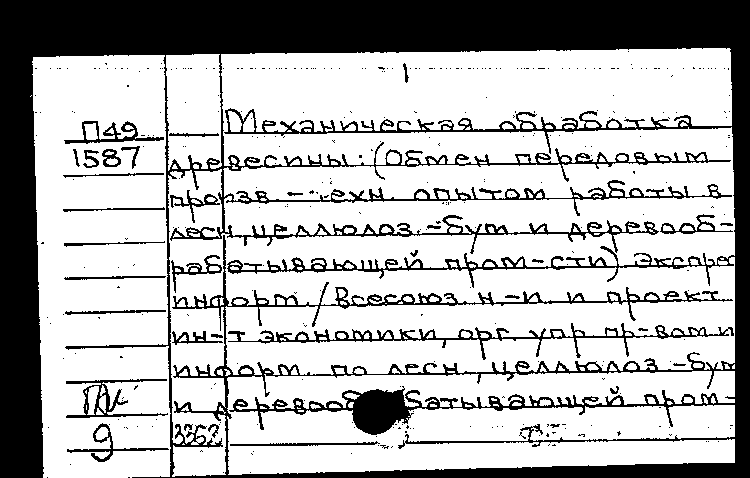 1
П49
1587
Механическая обработка
древесины: (Обмен передовым
произв - техн. опытом работы в
лесн, целлюлоз.-бум. и деревооб-
рабатывающей пром-сти) экспрес
информ. / Всесоюз. н.-и. и проект.
ин-т экономики, орг. упр. пр-вом и
информ. по лесн., целлюлоз.-бум
и деревообрабатывающей пром-
9
3362